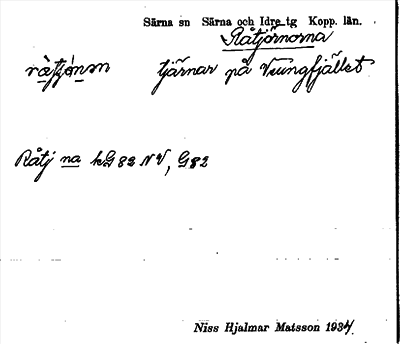 Särna sn Särna och Idre tg Kopp. län.
Råtjörnorna
ràtjó̱nm tjärnar på Vrungfjället
Råtj na kG 82 NV, G82
Niss Hjalmar Matsson 1934